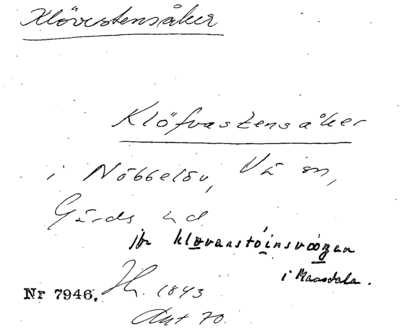 Klövestensåker
Klöfvastensåker
i Nöbbelöv, Vä sn,
Gärds hd
jfr klovanstóinsvöögen
i Maasdala.
Nr 7946. 1843
Akt 70.